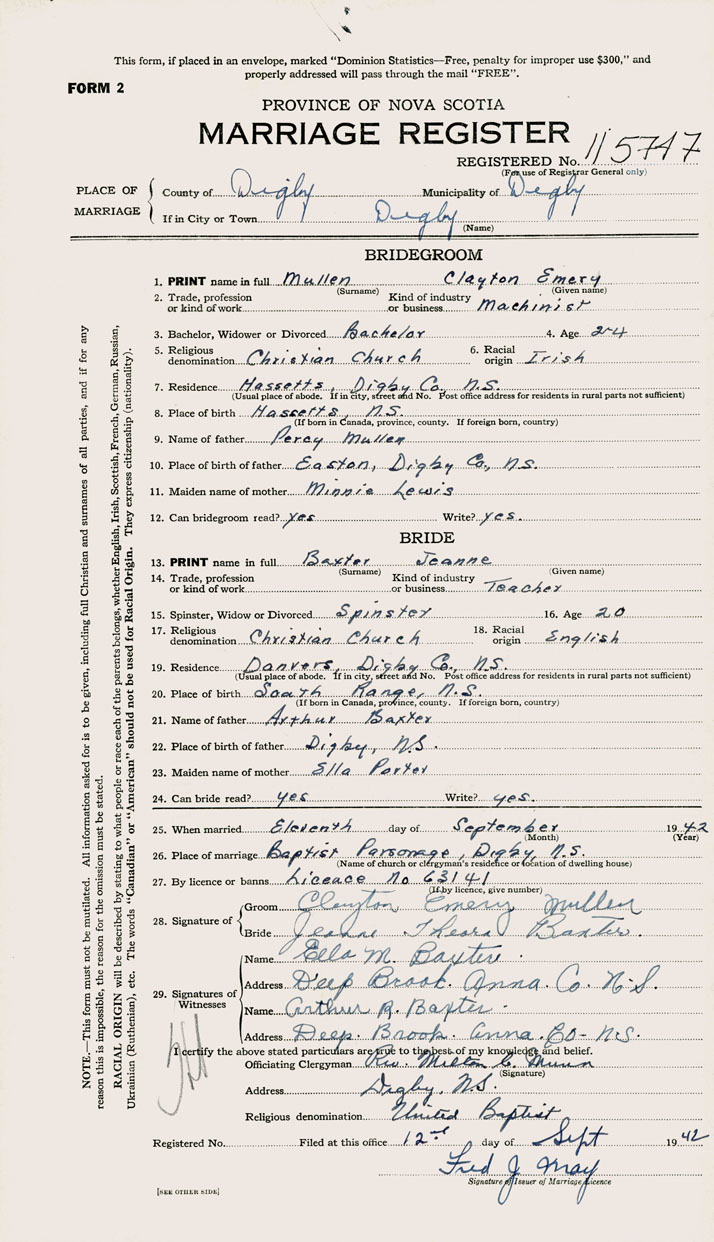 This form, if placed in an envelope, marked "Dominion Statistics—Free, penalty for improper use $300," and
properly addressed will pass through the mail "FREE".
FORM 2
PROVINCE OF NOVA SCOTIA
MARRIAGE REGISTER
REGISTERED No. 115747
(For use of Registrar General only)
PLACE OF MARRIAGE
County of Digby Municipality of Digby
If in City or Town Digby
(Name)
BRIDEGROOM
1. PRINT name in full Mullen Clayton Emery
(Surname) (Given name)
2. Trade, profession or kind of work Kind of industry or business Machinist
3. Bachelor, Widower or Divorced Bachelor 4. Age 24
5. Religious denomination Christian Church 6. Racial origin Irish
7. Residence Hassetts, Digby Co., N.S.
(Usual place of abode. If in city, street and No. Post office address for residents in rural parts not sufficient)
8. Place of birth Hassetts, N.S.
(If born in Canada, province, county. If foreign born, country)
9. Name of father Percy Mullen
10. Place of birth of father Easton, Digby Co., N.S.
11. Maiden name of mother Minnie Lewis
12. Can bridegroom read? yes Write? yes.
BRIDE
13. PRINT name in full Baxter Jeanne
(Surname) (Given name)
14. Trade, profession or kind of work Kind of industry or business Teacher
15. Spinster, Widow or Divorced Spinster 16. Age 20
17. Religious denomination Christian Church 18. Racial origin English
19. Residence Danvers, Digby Co., N.S.
(Usual place of abode. If in city, street and No. Post office address for residents in rural parts not sufficient)
20. Place of birth South Range, N.S.
(If born in Canada, province, county. If foreign born, country)
21. Name of father Arthur Baxter
22. Place of birth of father Digby, N.S.
23. Maiden name of mother Ella Porter
24. Can bride read? yes Write? yes.
25. When married Eleventh day of September 1942
(Month) (Year)
26. Place of marriage Baptist Parsonage, Digby, N.S.
(Name of church or clergyman's residence or location of dwelling house)
27. By licence or banns Liceace No 63141
(If by licence, give number)
28. Signature of
Groom Clayton Emery Mullen
Bride Jeanne Theora Baxter.
29. Signatures of Witnesses
Name Ella M. Baxter.
Address Deep Brook. Anna. Co. N.S.
Name Arthur R. Baxter.
Address Deep. Brook. Anna. Co- N.S.
I certify the above stated particulars are true to the best of my knowledge and belief.
Officiating Clergyman Rev. Milton C. Munn
(Signature)
Address Digby, N.S.
Religious denomination United Baptist
Registered No. Filed at this office 12nd day of Sept 1942
Fred J. May
Signature of Issuer of Marriage Licence
[SEE OTHER SIDE]
NOTE.—This form must not be mutilated. All information asked for is to be given, including full Christian and surnames of all parties, and if for any
reason this is impossible, the reason for the omission must be stated.
RACIAL ORIGIN will be described by stating to what people or race each of the parents belongs, whether English, Irish, Scottish, French, German, Russian,
Ukrainian (Ruthenian), etc. The words "Canadian" or "American" should not be used for Racial Origin. They express citizenship (nationality).